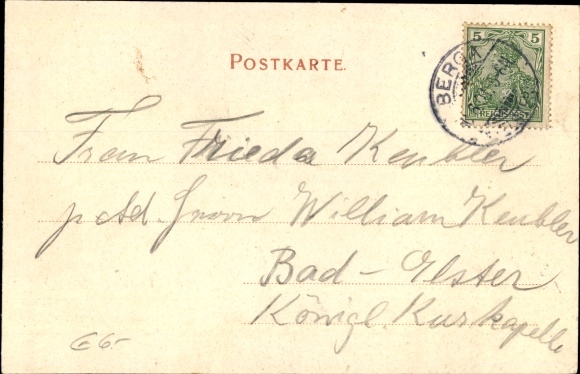 POSTKARTE.
5 5
BERGA
REICHSPOST
Frau Frieda Keubler
p. Ad. Herrn William Keubler
Bad - Elster
Königl. Kurkapelle
€ 6.-